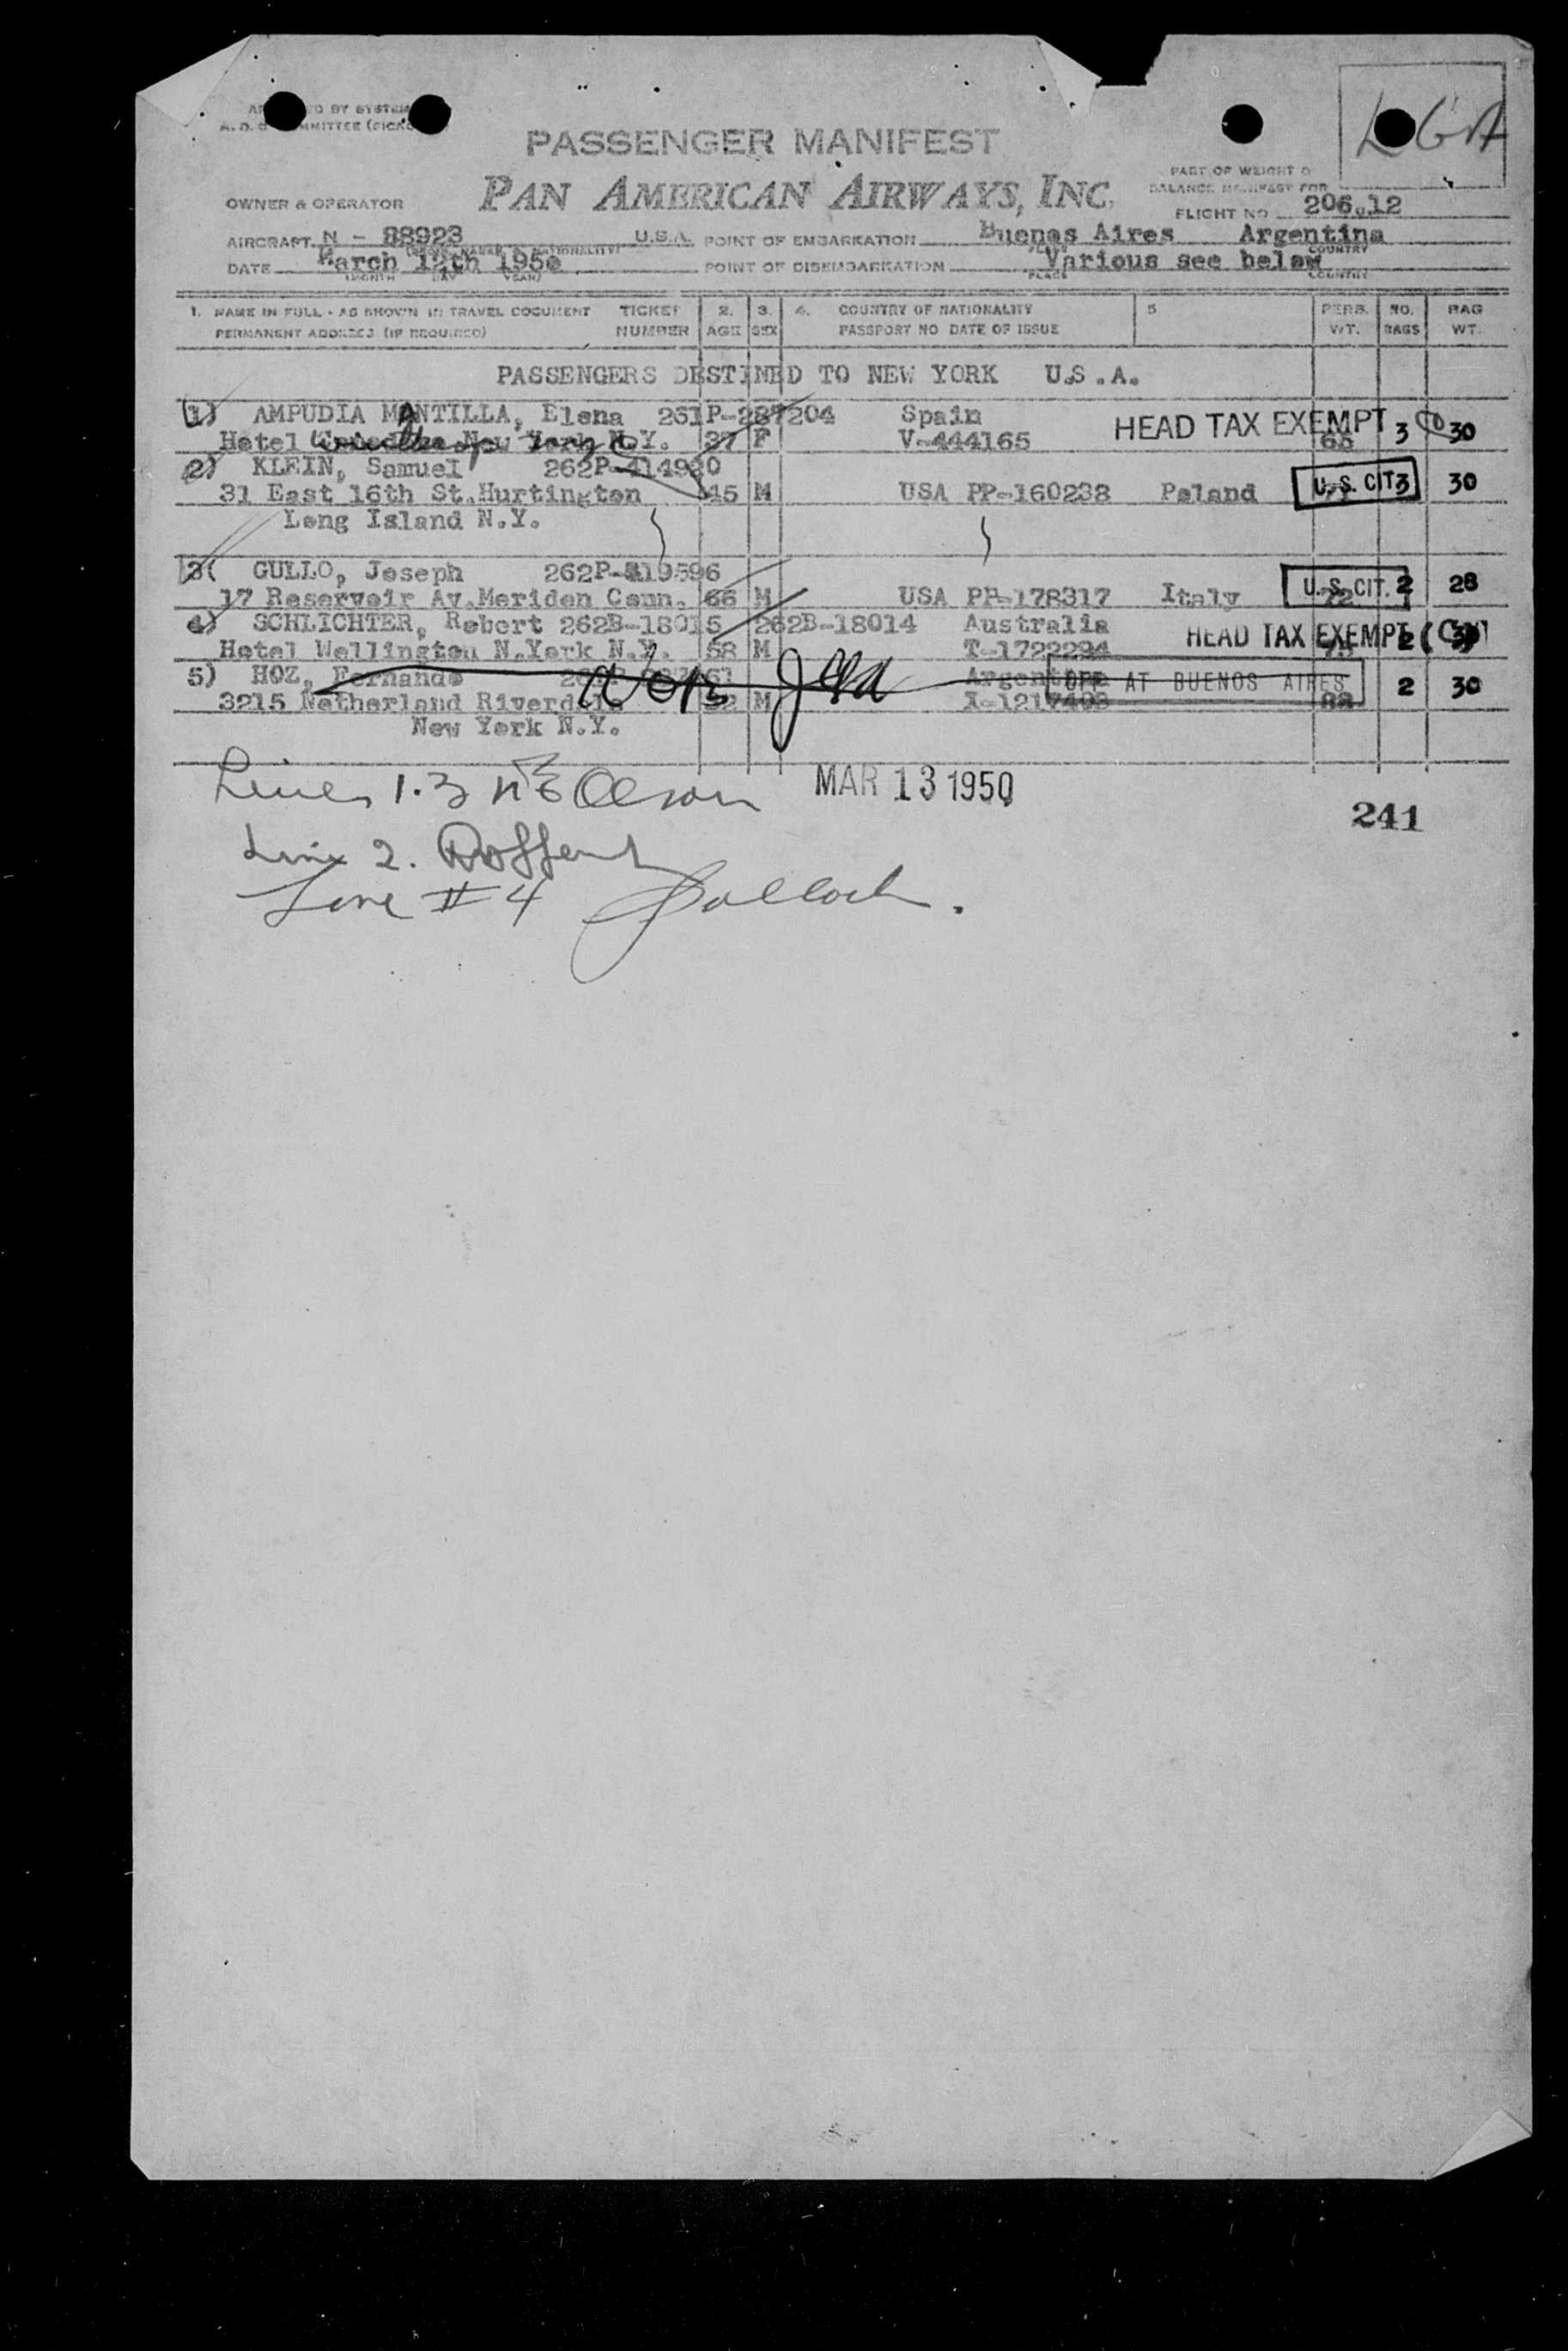 BY SYSTEM
LGA
PASSENGER MANIFEST
PAN AMERICAN AIRWAYS, INC.
PART OF WEIGHT &
BALANCE MANIFEST FOR
FLIGHT NO 206.12
OWNER & OPERATOR
AIRCRAFT N - 88923 U.S.A. POINT OF EMBARKATION Buenos Aires Argentina
DATE March 12th 1950 POINT OF DISEMBARKATION Various see below
MONTH DAY YEAR PLACE COUNTRY
1. NAME IN FULL - AS SHOWN IN TRAVEL DOCUMENT TICKET 2. 3. 4. COUNTRY OF NATIONALITY 5 PERS. NO. BAG
PERMANENT ADDRESS (IF REQUIRED) NUMBER AGE SEX PASSPORT NO DATE OF ISSUE WT. BAGS WT.
PASSENGERS DESTINED TO NEW YORK U.S.A.
(1) AMPUDIA MANTILLA, Elena 261P-287204 Spain HEAD TAX EXEMPT
Hotel New York N.Y. 37 F V-444165 65 3 30
2) KLEIN, Samuel 262P-414920
31 East 16th St.Hurtington 45 M USA PP-160238 Poland U.S. CIT 3 30
Long Island N.Y.
3( GULLO, Joseph 262P-419596
17 Reservoir Av.Meriden Conn. 66 M USA PP-178317 Italy U.S. CIT. 72 2 28
4) SCHLICHTER, Robert 262B-18015 262B-18014 Australia
Hotel Wellington N.York N.Y. 58 M T-1722294 HEAD TAX EXEMPT 2
5) HOZ, Fernando Argentina OFF AT BUENOS AIRES
3215 Netherland Riverdale M 2 30
New York N.Y.
Lines 1.3 Olson MAR 13 1950
241
Line 2.
Line # 4 Pollock.